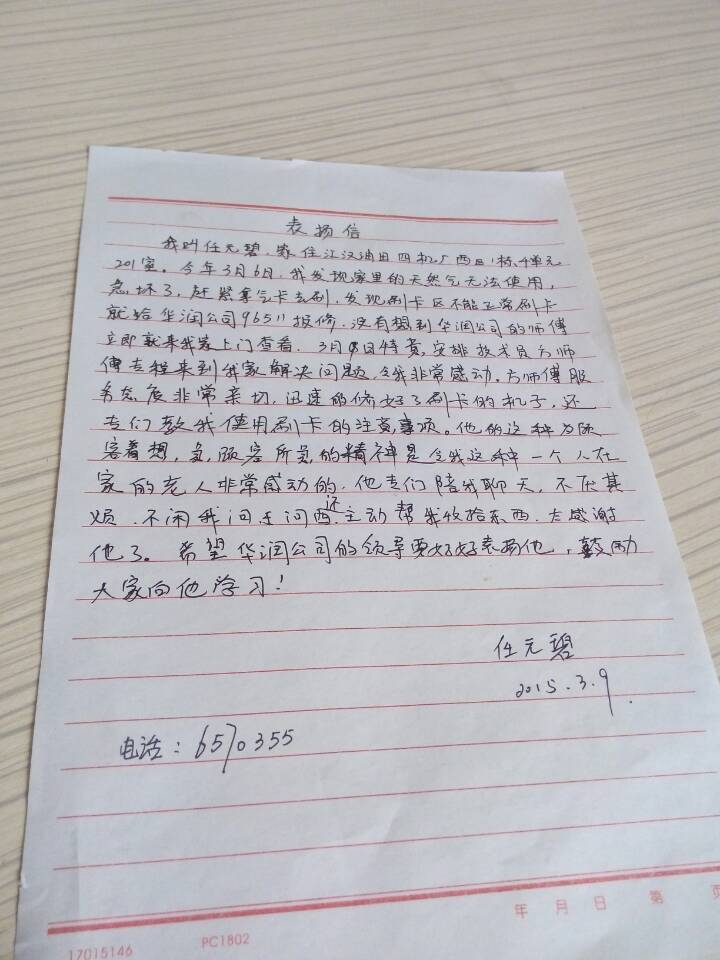 表扬信
我叫任元碧，家住江汉油田四机厂西区1栋4单元
201室。今年3月6日，我发现家里的天然气无法使用，
急坏了，赶紧拿气卡去刷，发现刷卡区不能正常刷卡
就给华润公司96511报修，没有想到华润公司的师傅
立即就来我家上门查看，3月9日特责，安排技术员方师
傅专程来到我家解决问题，令我非常感动。方师傅服
务态度非常亲切，迅速的修好了刷卡的机子，还
专门教我使用刷卡的注意事项。他的这种为顾
客着想，急顾客所急的精神是令我这种一个人在
家的老人非常感动的，他专门陪我聊天，不厌其
烦，不闲我问东问西，还主动帮我收拾东西，太感谢
他了。希望华润公司的领导要好好表扬他，鼓励
大家向他学习！
任元碧
2015.3.9.
电话：6570355
年 月 日 第 页
17015146 PC1802